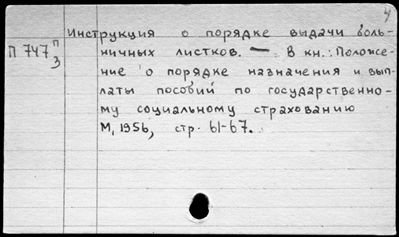 4
Инструкция о порядке выдачи боль-
П 747 п/3 ничных листков. — В кн.: Положе-
ние о порядке назначения и вып-
латы пособий по государственно-
му социальному страхованию
М, 1956, стр. 61-67.